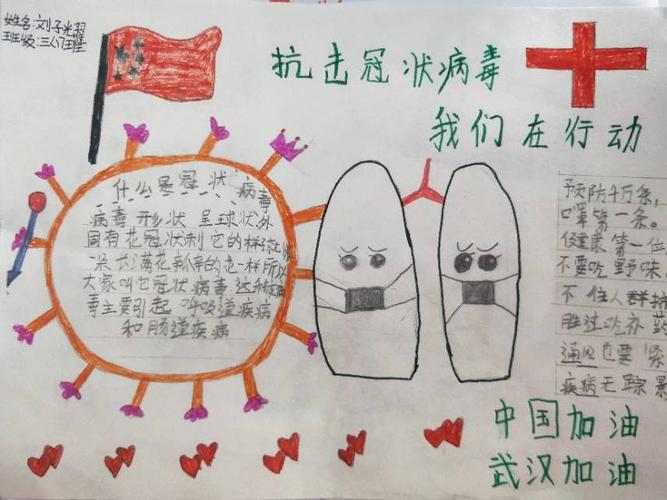 姓名:刘子光
班级:三
抗击冠状病毒
我们在行动
什么是冠状病毒
病毒形状呈球状外
围有花冠状刺它的样
朵长满花的花一样所以
大家叫它冠状病毒这种
毒主要引起呼吸道疾病
和肠道疾病
预防千万条,
口罩第一条。
健康第一位
不要吃野味
不住人群挤
胜过吃补药
通风也要
疾病无踪影
中国加油
武汉加油